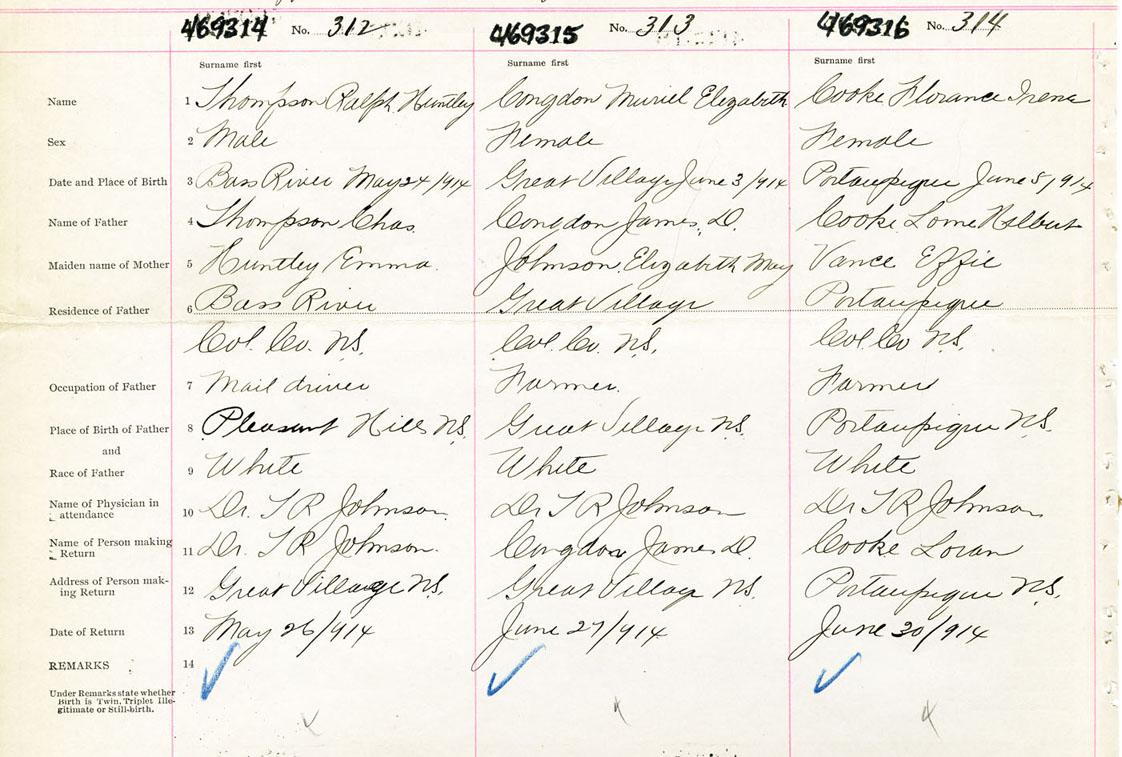 469314 No. 312 469315 No. 313 469316 No. 314
Surname first Surname first Surname first
Name 1 Thompson Ralph Huntley Congdon Muriel Elizabeth Cooke Florance Irena
Sex 2 Male Female Female
Date and Place of Birth 3 Bass River May 24/914 Great Village June 3/914 Portaupique June 5/914
Name of Father 4 Thompson Chas. Congdon James D. Cooke Lorne Halburt
Maiden name of Mother 5 Huntley Emma. Johnson, Elizabeth May Vance Effie
Residence of Father 6 Bass River Great Village Portaupique
Col. Co. N.S. Col. Co. N.S. Col. Co N.S.
Occupation of Father 7 Mail driver Farmer. Farmer
Place of Birth of Father 8 Pleasant Hills N.S. Great Village N.S. Portaupique N.S.
and
Race of Father 9 White White White
Name of Physician in
attendance 10 Dr. T R Johnson. Dr T R Johnson Dr T R Johnson
Name of Person making
Return 11 Dr. T R Johnson. Congdon James D. Cooke Loran
Address of Person mak-
ing Return 12 Great Village N.S. Great Village N.S. Portaupique N.S.
Date of Return 13 May 26/914 June 27/914 June 30/914
REMARKS 14
Under Remarks state whether
Birth is Twin, Triplet Ille-
gitimate or Still-birth.